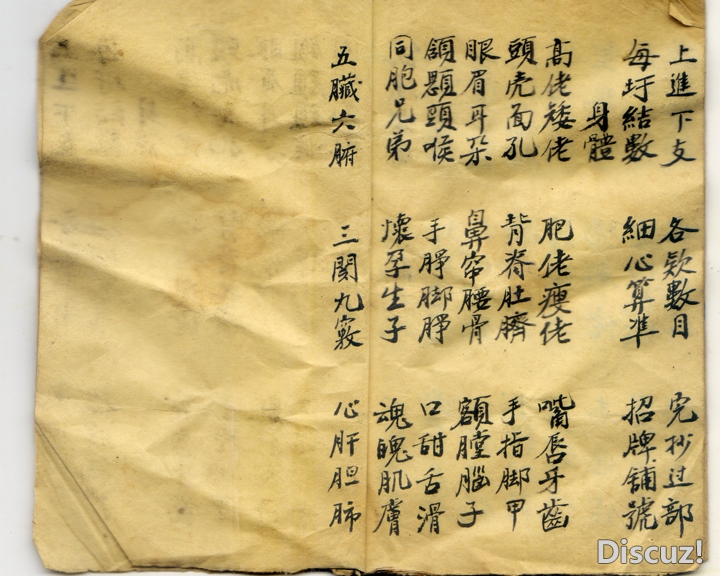 上進下支 各欵數目 完抄过部
每圩結數 細心算準 招牌鋪號
身體
高佬矮佬 肥佬瘦佬 嘴唇牙齒
頭壳面孔 背脊肚臍 手指脚甲
眼眉耳朶 鼻帘腰骨 額膛腦子
頷顋頭喉 手睜脚睜 口甜舌滑
同胞兄弟 懷孕生子 魂魄肌膚
五臟六腑 三関九竅 心肝胆肺
Discuz!